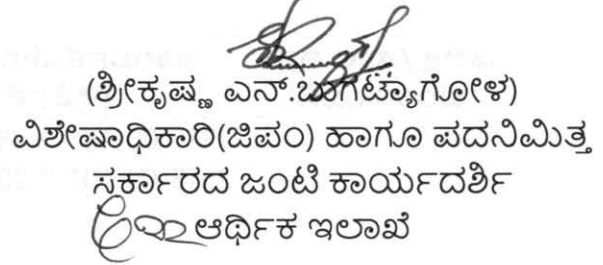 (ಶ್ರೀಕೃಷ್ಣ ಎನ್.ಬಾಗೆಟ್ಯಾಗೋಳ)
ವಿಶೇಷಾಧಿಕಾರಿ(ಜಿಪಂ) ಹಾಗೂ ಪದನಿಮಿತ್ತ
ಸರ್ಕಾರದ ಜಂಟಿ ಕಾರ್ಯದರ್ಶಿ
ಆರ್ಥಿಕ ಇಲಾಖೆ